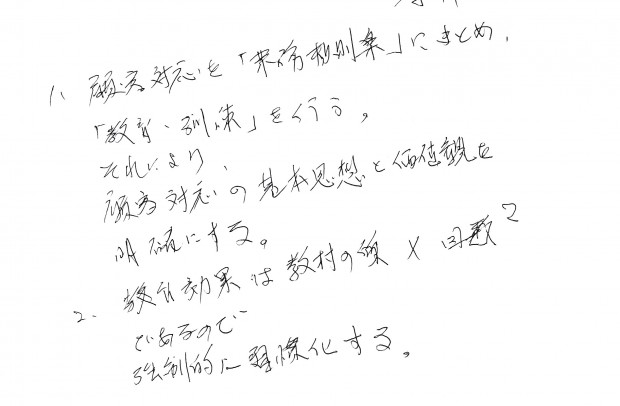 1、顧客対応を「業務規則集」にまとめ、
「教育・訓練」を行う。
それにより、
顧客対応の基本思想と価値観を
明確にする。
2、教育効果は教材の質×回数2
であるので
強制的に習慣化する。